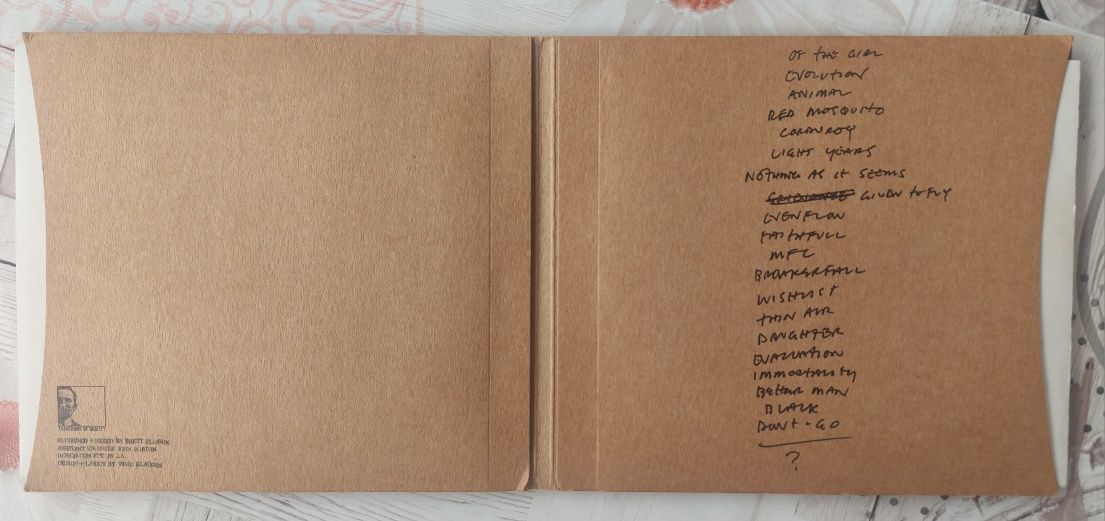 RECORDED + MIXED BY BRETT ELIASON
ASSISTANT ENGINEER JOHN BURTON
OF THE GIRL
EVOLUTION
ANIMAL
RED MOSQUITO
CORDUROY
LIGHT YEARS
NOTHING AS IT SEEMS
GIVEN TO FLY
EVENFLOW
FAITHFULL
MFC
BREAKERFALL
WISHLIST
THIN AIR
DAUGHTER
EVALUATION
IMMORTALITY
BETTER MAN
BLACK
DONT-GO
?